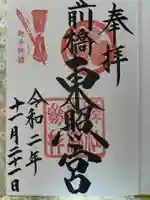 奉拝
前橋東照宮
令和二年
十一月二十一日